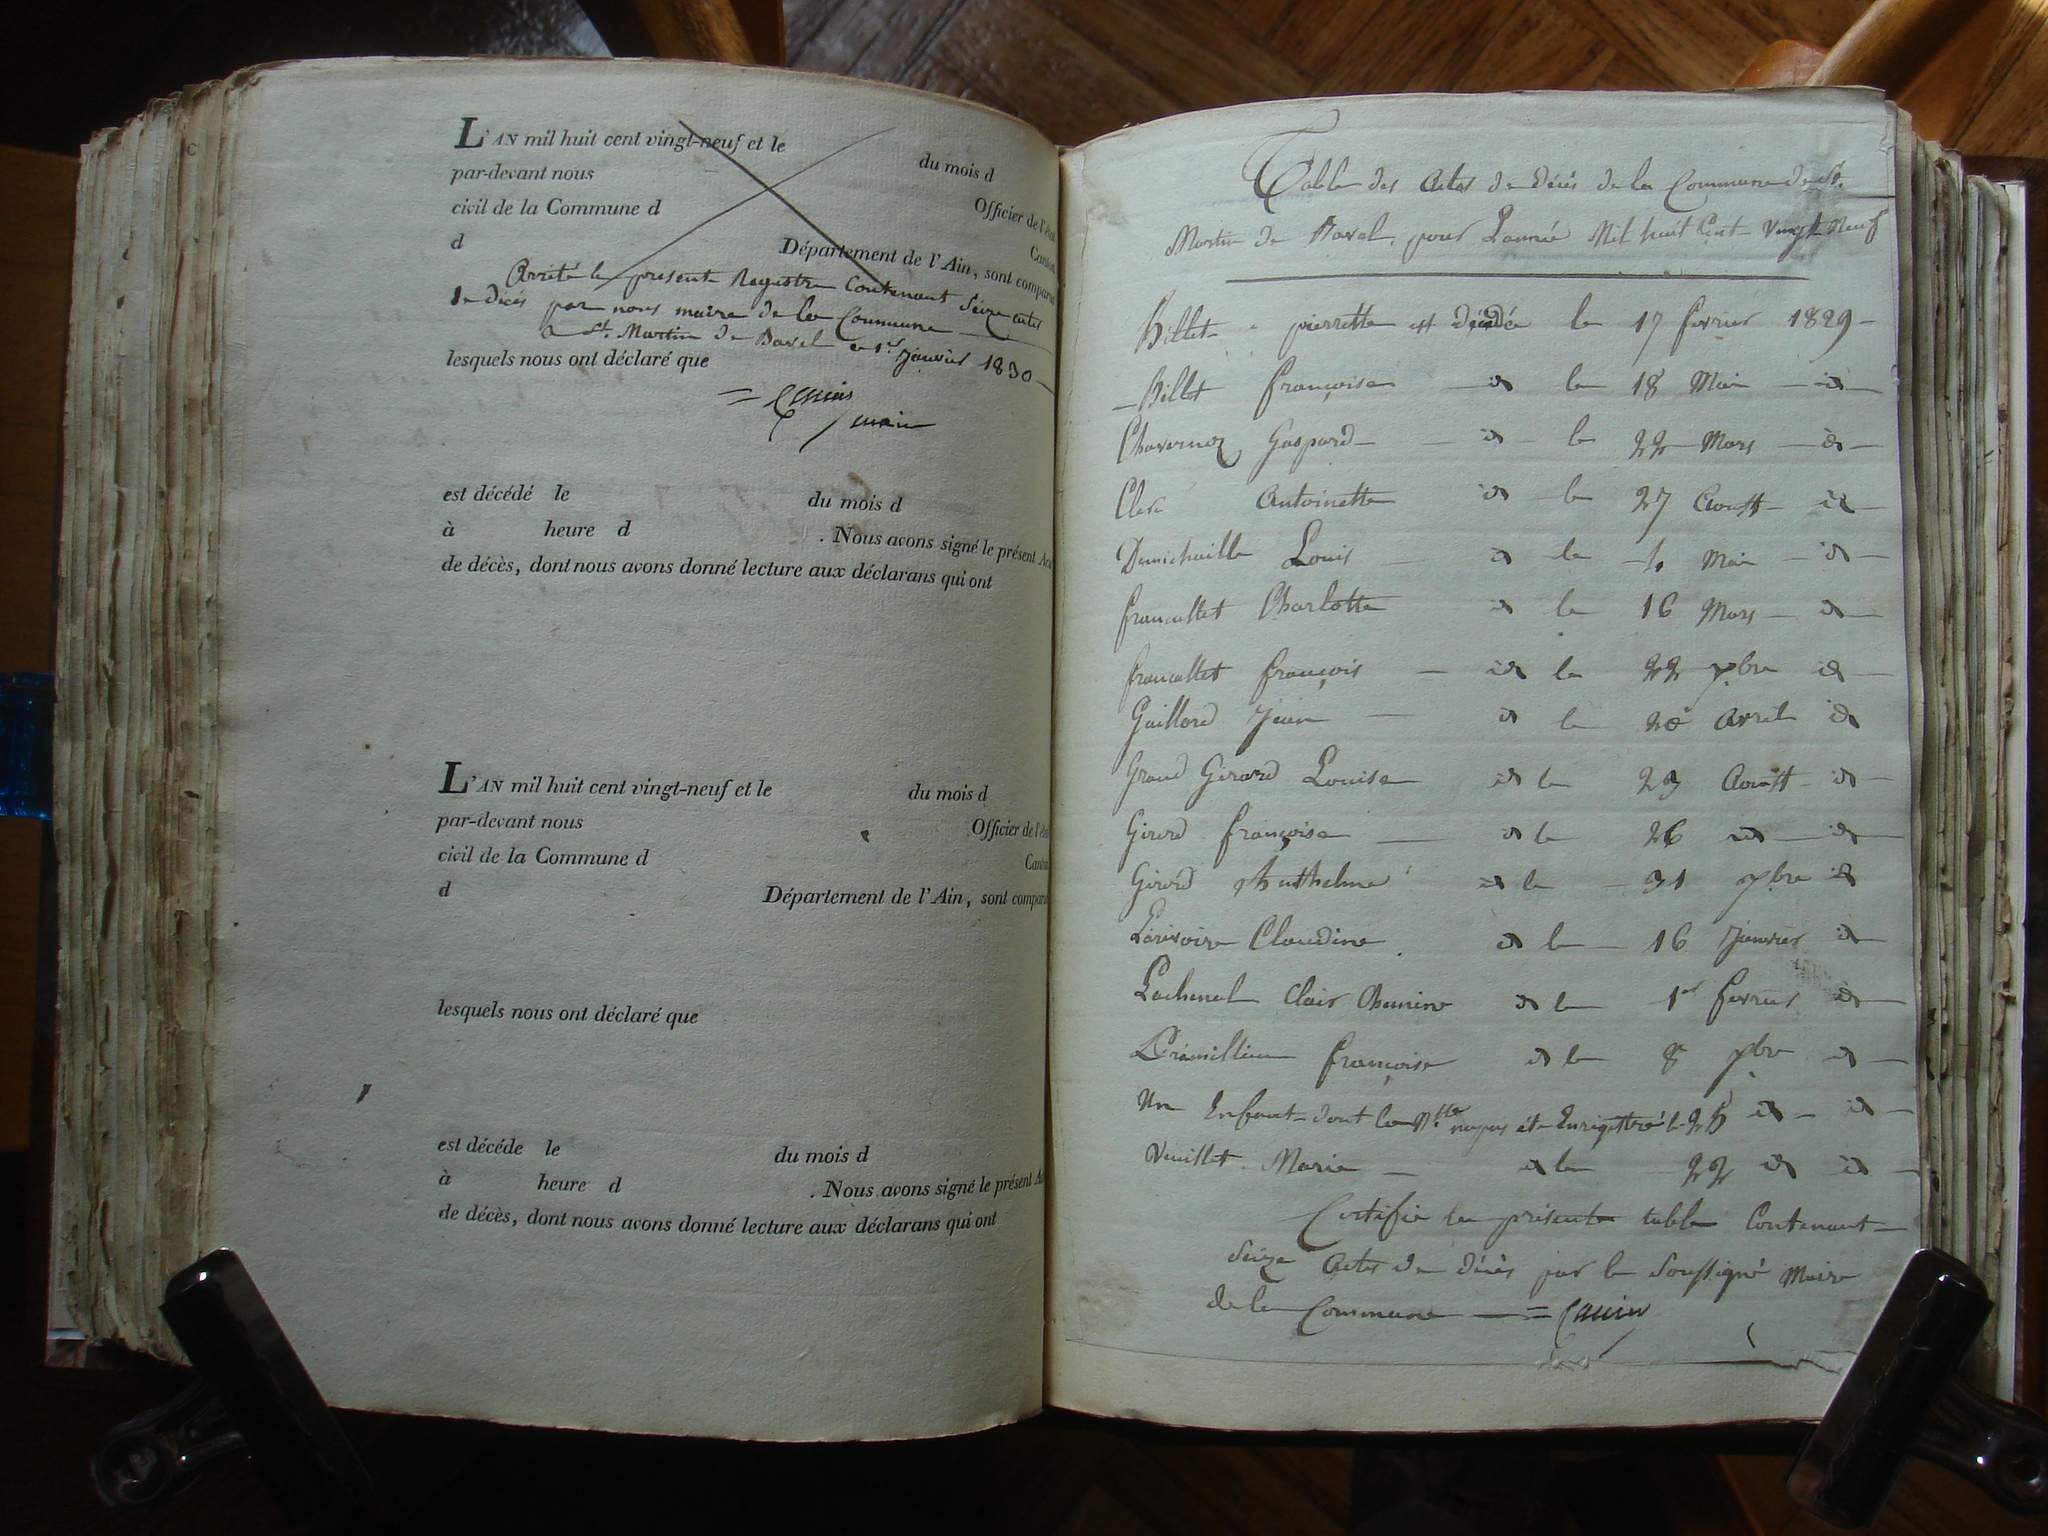 L'AN mil huit cent vingt-neuf et le du mois d
par-devant nous Officier de l'état
civil de la Commune d Canton
d Département de l'Ain, sont comparus
Arrêté le present Registre Contenant Seize actes
de décés par nous maire de la Commune
a St. Martin de Bavel ce 1er Janvier 1830
lesquels nous ont déclaré que
maire
est décédé le du mois d
à heure d . Nous avons signé le présent Acte
de décès, dont nous avons donné lecture aux déclarans qui ont
L'AN mil huit cent vingt-neuf et le du mois d
par-devant nous Officier de l'état
civil de la Commune d Canton
d Département de l'Ain, sont comparus
lesquels nous ont déclaré que
est décéde le du mois d
à heure d . Nous avons signé le présent Acte
de décès, dont nous avons donné lecture aux déclarans qui ont
Table des Actes de Décès de la Commune de St.
Martin de Bavel pour L'année Mil huit Cent Vingt Neuf
Billet pierrette est décédée le 17 fevrier 1829
Billet françoise id le 18 Mai id
Chavernoz Gaspard id le 22 Mars id
Clerc Antoinette id le 27 Aoust id
Dumichaille Louis id le Mai id
francallet Charlotte id le 16 Mars id
francallet françois id le 22 7bre id
Gaillard Jean id le 20 Avril id
Grand Girard Louise id le 23 Aoust id
Girard françoise id le 26 id id
Girard Anthelme id le 31 7bre id
Larivoire Claudine id le 16 Janvier id
Lachenal Clair id le 1er fevrier id
françoise id le 8 7bre id
Un Enfant dont la n'a pas été Enregistré le 25 id id
Vuillet Marie id le 22 id id
Certifié la présente table Contenant
Seize Actes de décès par le Soussigné Maire
de la Commune